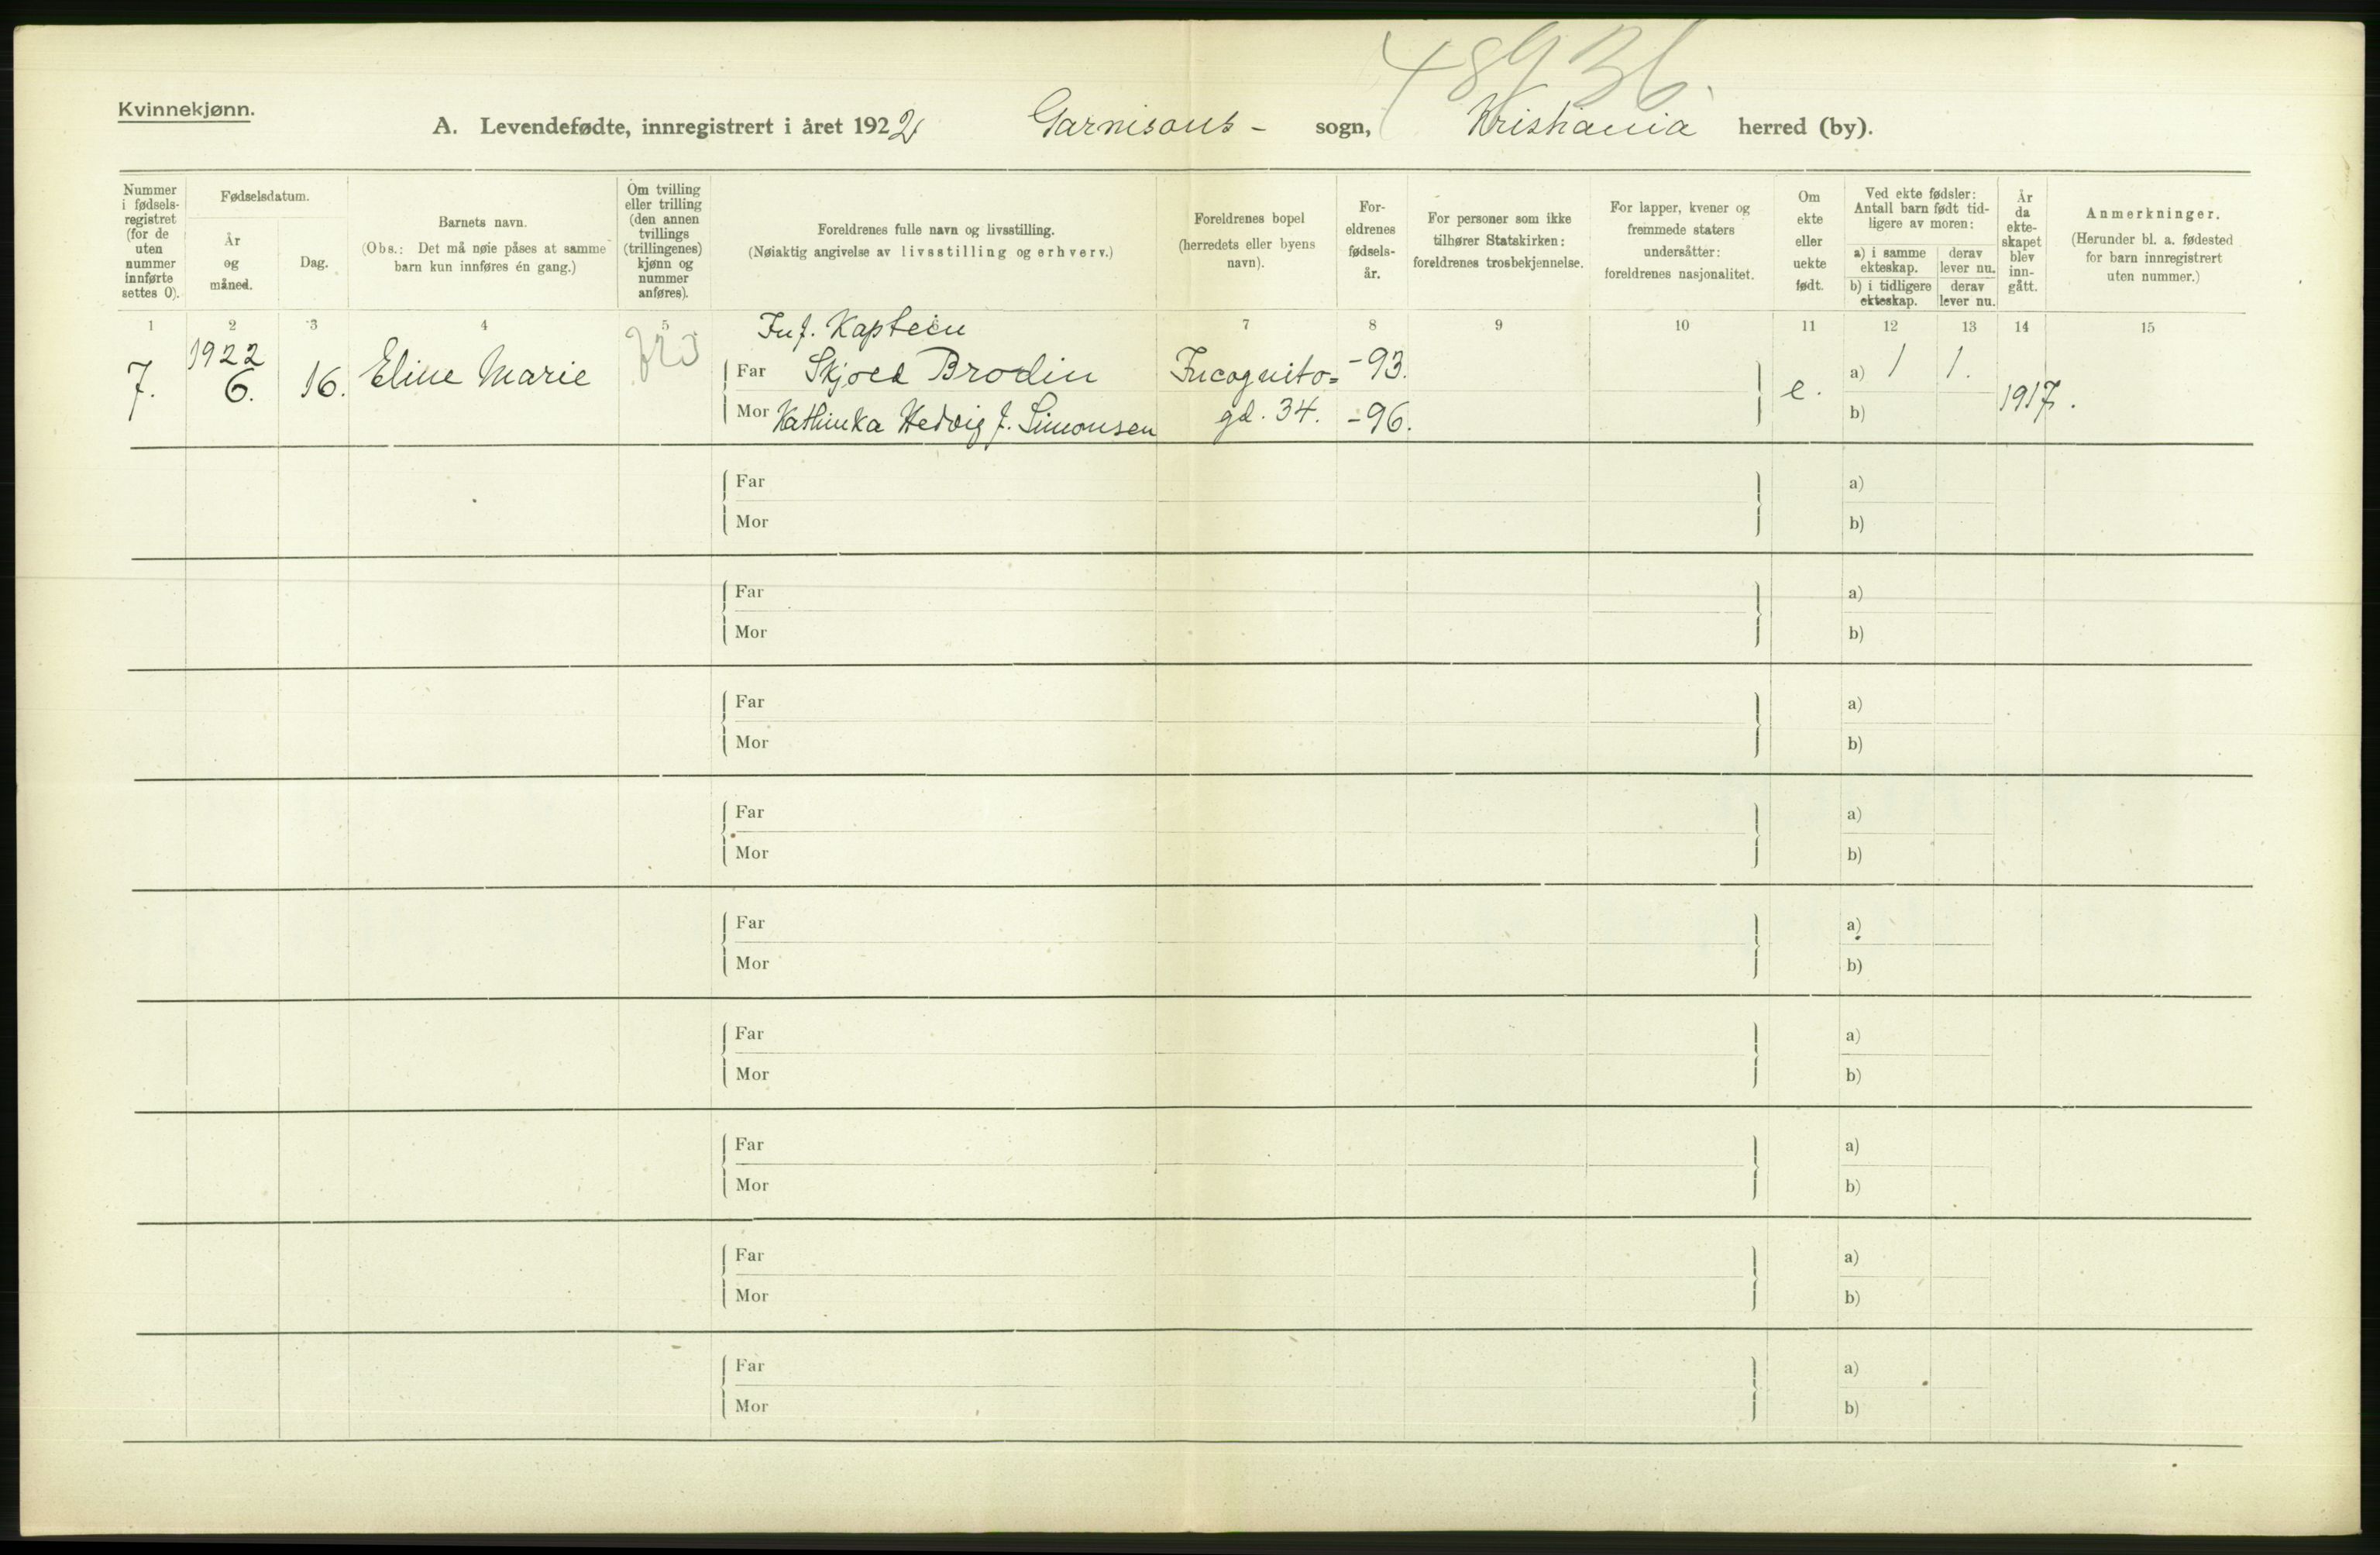 48936.
Kvinnekjønn.
A. Levendefødte, innregistrert i året 1922 Garnisons- sogn, Kristiania herred (by).
Nummer i fødsels-registret (for de uten nummer innførte settes 0).
Fødselsdatum.
År og måned.
Dag.
Barnets navn.
(Obs.: Det må nøie påses at samme barn kun innføres én gang.)
Om tvilling eller trilling (den annen tvillings (trillingenes) kjønn og nummer anføres).
Foreldrenes fulle navn og livsstilling.
(Nøiaktig angivelse av livsstilling og erhverv.)
Foreldrenes bopel (herredets eller byens navn).
For-eldrenes fødsels-år.
For personer som ikke tilhører Statskirken: foreldrenes trosbekjennelse.
For lapper, kvener og fremmede staters undersåtter: foreldrenes nasjonalitet.
Om ekte eller uekte født.
Ved ekte fødsler: Antall barn født tid-ligere av moren:
a) i samme ekteskap.
derav lever nu.
b) i tidligere ekteskap.
derav lever nu.
År da ekte-skapet blev inn-gått.
Anmerkninger.
(Herunder bl. a. fødested for barn innregistrert uten nummer.)
1 2 3 4 5 7 8 9 10 11 12 13 14 15
Inf. Kaptein
7. 1922 6. 16. Eline Marie
Far Skjold Brodin Incognito= -93. e. a) 1 1. 1917.
Mor Kathinka Hedvig J. Simonsen gd. 34. -96. b)
Far a)
Mor b)
Far a)
Mor b)
Far a)
Mor b)
Far a)
Mor b)
Far a)
Mor b)
Far a)
Mor b)
Far a)
Mor b)
Far a)
Mor b)
Far a)
Mor b)